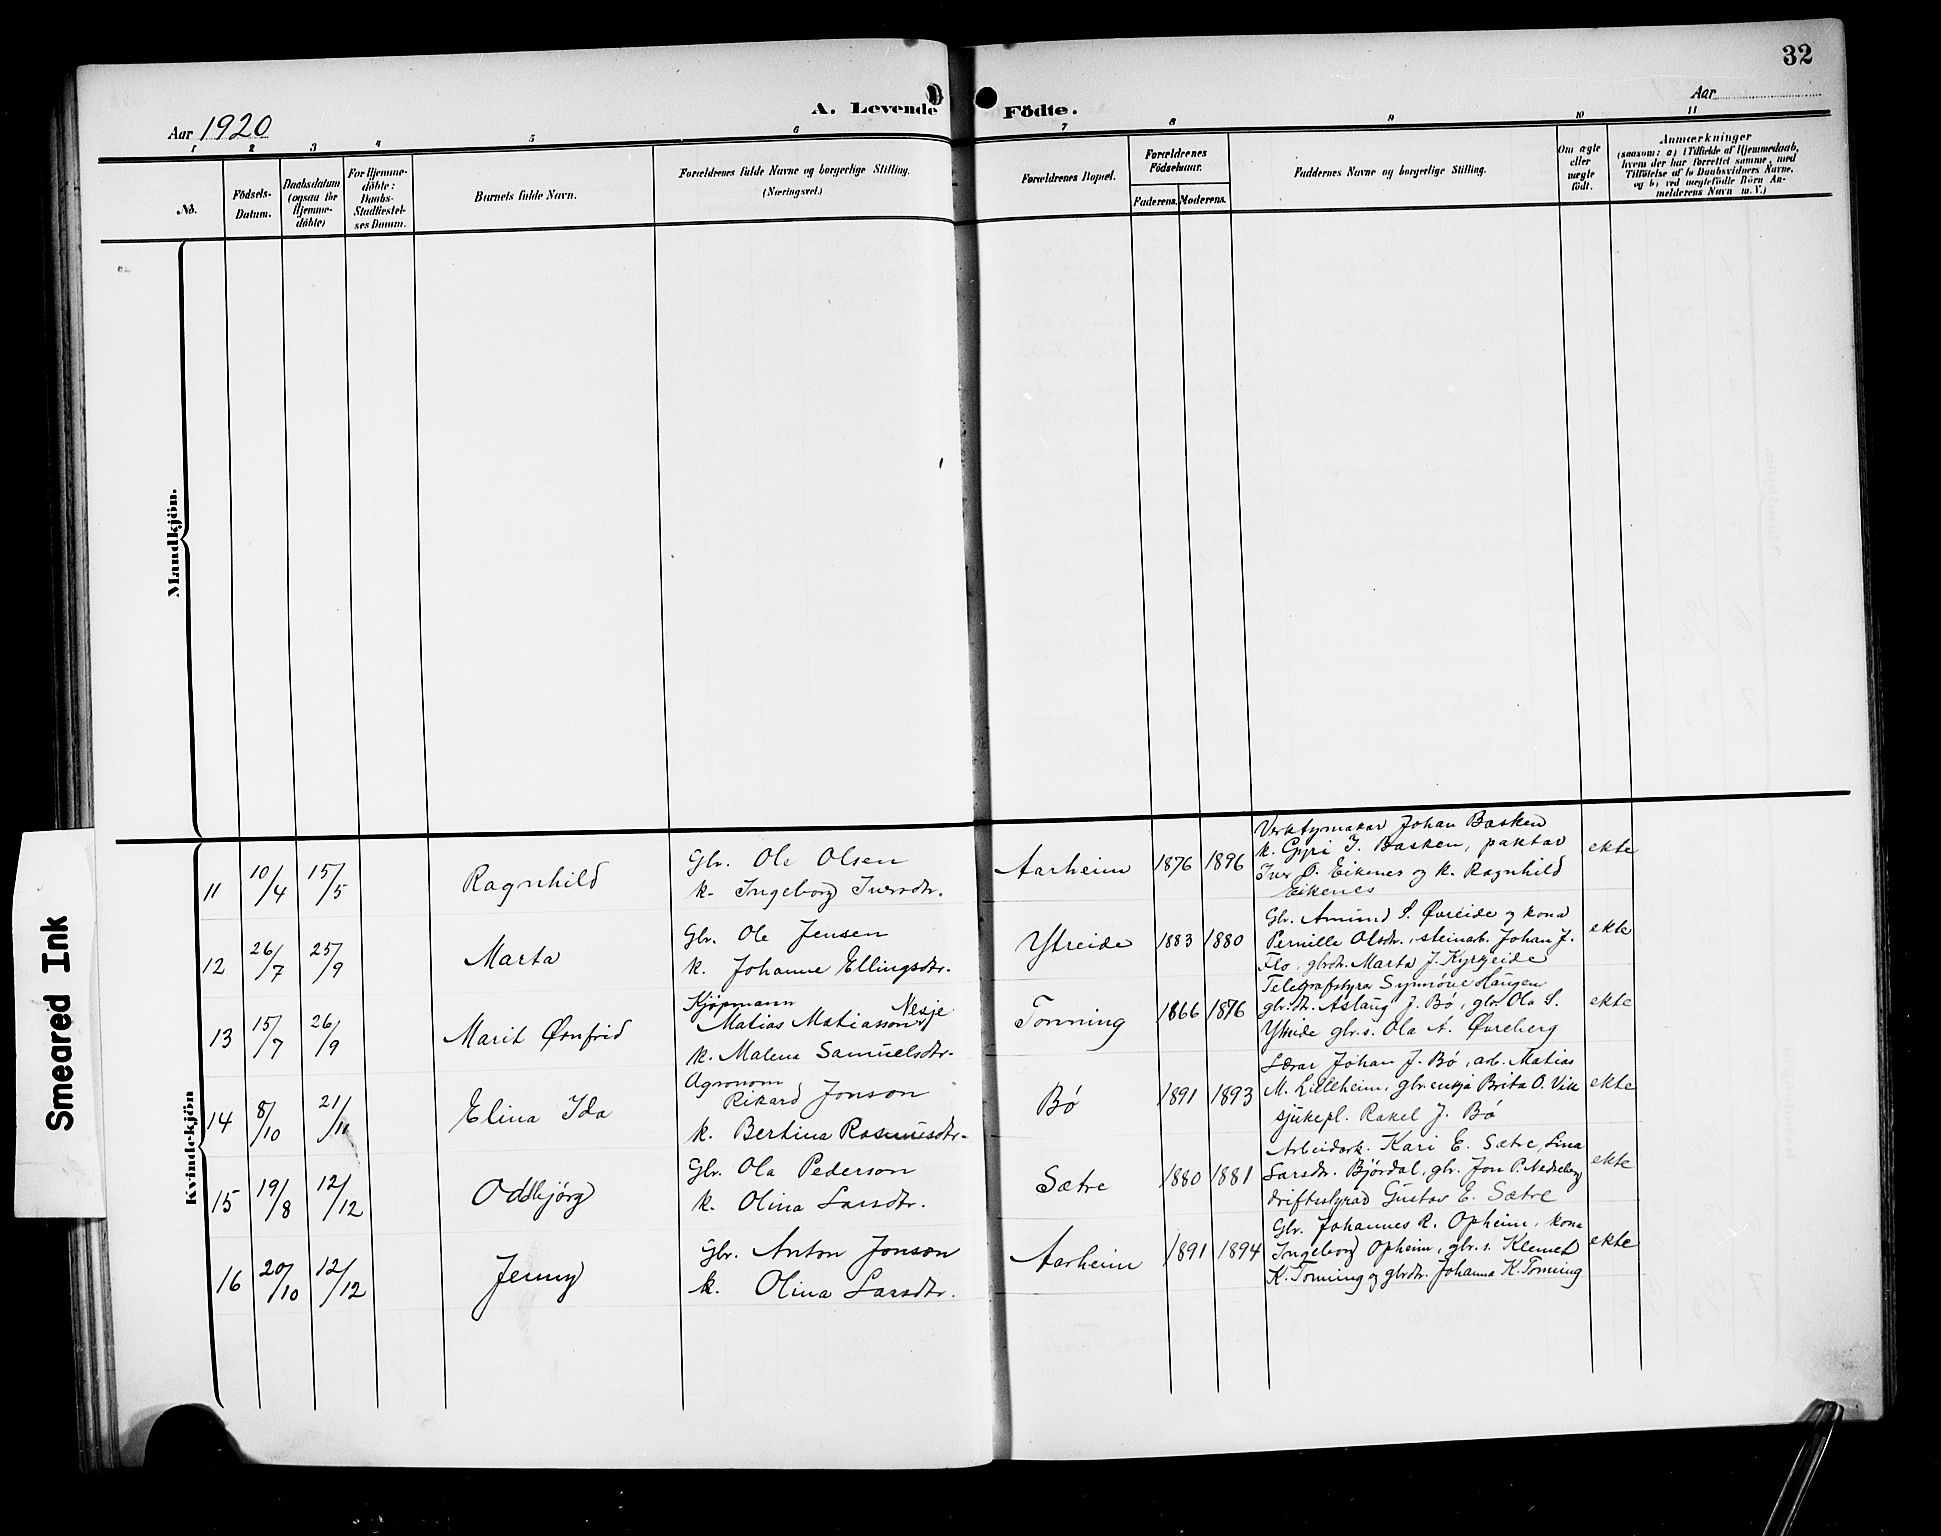 32
Aar
A. Levende Födte.
Aar 1920
1 2 3 4 5 6 7 8 9 10 11
No.
Födsels-
Datum.
Daabsdatum
(ogsaa for
Hjemme-
döbte)
For Hjemme-
döbte:
Daabs-
Stadfæstel-
ses Datum.
Barnets fulde Navn.
Forældrenes fulde Navne og borgerlige Stilling.
(Næringsvei.)
Forældrenes Bopæl.
Forældrenes
Födselsaar.
Faderens. Moderens.
Faddernes Navne og borgerlige Stilling.
Om ægte
eller
uægte
födt.
Anmærkninger
(saasom: a) i Tilfælde af Hjemmedaab,
hvem der har forrettet samme, med
Tilföielse af to Daabsvidners Navne,
og b) ved uægtefödte Börn An-
melderens Navn m. V.)
Mandkjön.
Kvindekjön
Smeared Ink
11 10/4 15/5 Ragnhild
Gbr. Ole Olsen
k. Ingeborg Iversdtr.
Aarheim 1876 1896
Verktymakar Johan Basken
k. Gyri I. Basken, paktar
Iver O. Eikenes og k. Ragnhild
Eikenes
ekte
12 26/7 25/9 Marta
Gbr. Ole Jensen
k. Johanne Ellingsdtr.
Ytreide 1883 1880
Gbr. Amund S. Øvreide og kona
Pernille Olsdtr., steinarb. Johan J.
Flo, gbrdtr. Marta J. Kyrkjeide
ekte
13 15/7 26/9 Marit Øsnfrid
Kjøpmann Nesje
Matias Matiasson
k. Malena Samuelsdtr.
Tonning 1866 1876
Telegrafstyra Synnöve Haugen
gbr.dtr. Aslaug J. Bø, gbr. Ola S.
Ytreide gbr.s. Ola A. Øvreberg
ekte
14 8/10 21/11 Elina Ida
Agronom
Rikard Jonson
k. Bertina Rasmusdtr.
Bø 1891 1893
Lærar Johan J. Bø, arb. Matias
M. Lilleheim, gbr.enkja Brita O. Vik
sjukepl. Rakel J. Bø
ekte
15 19/8 12/12 Oddbjørg
Gbr. Ola Pederson
k. Olina Larsdtr.
Sætre 1880 1881
Arbeidark. Kari E. Sætre, Lina
Larsdtr. Bjørdal, gbr. Jon P. Nedreberg
driftsstyrar Gustav E. Sætre
ekte
16 20/10 12/12 Jenny
Gbr. Anton Jonson
k. Olina Larsdtr.
Aarheim 1891 1894
Gbr. Johannes R. Opheim, kona
Ingeborg Opheim, gbr.s. Klemet
K. Tonning og gbrdtr. Johanna K. Tonning
ekte